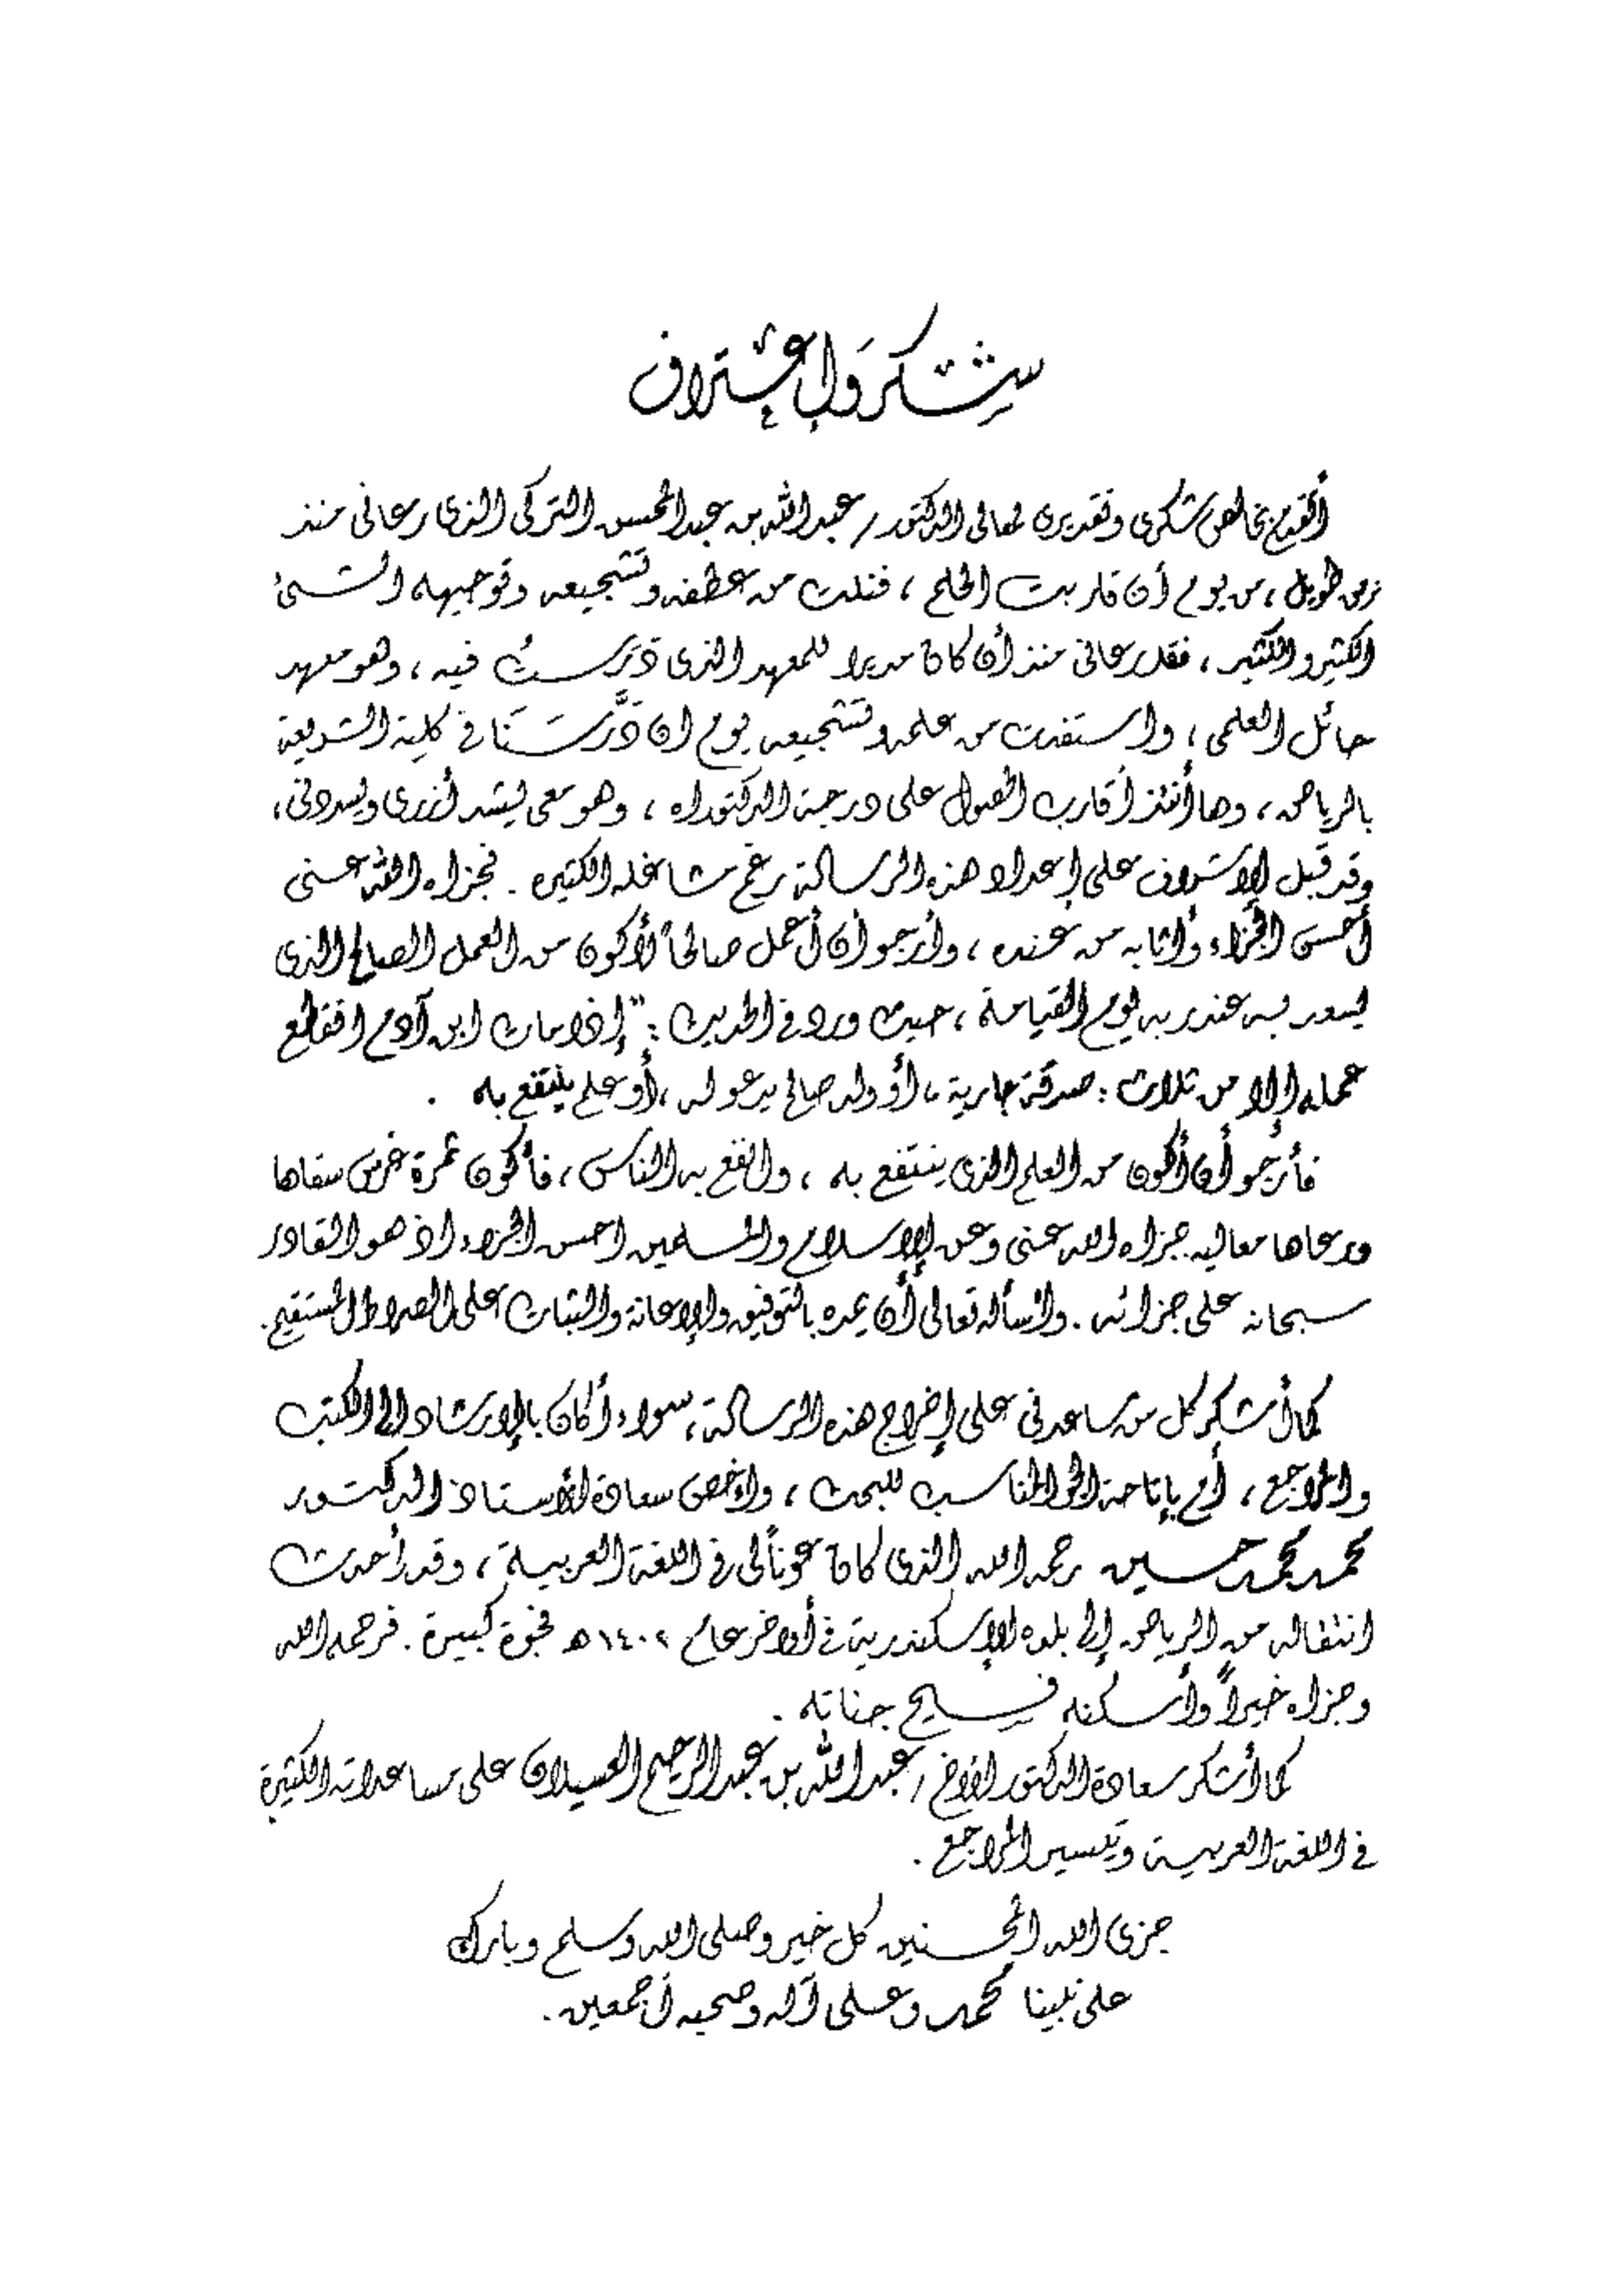 شكر وإعتراف
أتقدم بخالص شكرى وتقديرى لمعالى الدكتور / عبد الله بن عبد المحسن التركى الذى رعانى منذ
زمن طويل ، من يوم أن قاربت الحلم ، فنلت من عطفه وتشجيعه وتوجيهه الشىء
الكثير والكثير ، فقد رعانى منذ أن كان مديرا للمعهد الذى دَرَستُ فيه ، وهو معهد
حائل العلمى ، واستفدت من علمه وتشجيعه يوم ان دَرَّسَنَا فى كلية الشريعة
بالرياض ، وها أنئذ أقارب الحصول على درجة الدكتوراه ، وهو معى يشد أزرى ويسددنى ،
وقد قبل الإشراف على إعداد هذه الرسالة رغم مشاغله الكثيره . فجزاه الله عنى
أحسن الجزاء وأثابه من عنده ، وأرجو أن أعمل صالحاً لأكون من العمل الصالح الذى
يسعد به عند ربه يوم القيامة ، حيث ورد فى الحديث : " إذا مات ابن آدم انقطع
عمله إلا من ثلاث : صدقة جارية ، أو ولد صالح يدعو له ، أو علم ينتفع به .
فأرجو أن أكون من العلم الذى ينتفع به ، وانفع به الناس ، فأكون ثمرة غرس سقاها
ورعاها معاليه جزاه الله عنى وعن الإسلام والمسلمين احسن الجزاء اذ هو القادر
سبحانه على جزائه . وأسأله تعالى أن يمده بالتوفيق والإعانة والثبات على الصراط المستقيم .
كما أشكر كل من ساعدنى على إخراج هذه الرسالة ، سواء أكان بالإرشاد الى الكتب
والمراجع ، أم بإتاحة الجو المناسب للبحث ، وأخص سعادة الأستاذ الدكتور
محمد محمد حسين رحمه الله الذى كان عوناً لى فى اللغة العربية ، وقد أحدث
انتقاله من الرياض إلى بلده الإسكندرية فى أواخر عام ١٤٠٢ هـ فجوة كبيرة . فرحمه الله
وجزاه خيراً وأسكنه فسيح جناته .
كما أشكر سعادة الدكتور الأخ / عبد الله بن عبد الرحيم العسيلان على مساعداته الكثيرة
فى اللغة العربية وتيسير المراجع .
جزى الله المحسنين كل خير وصلى الله وسلم وبارك
على نبينا محمد وعلى آله وصحبه أجمعين .